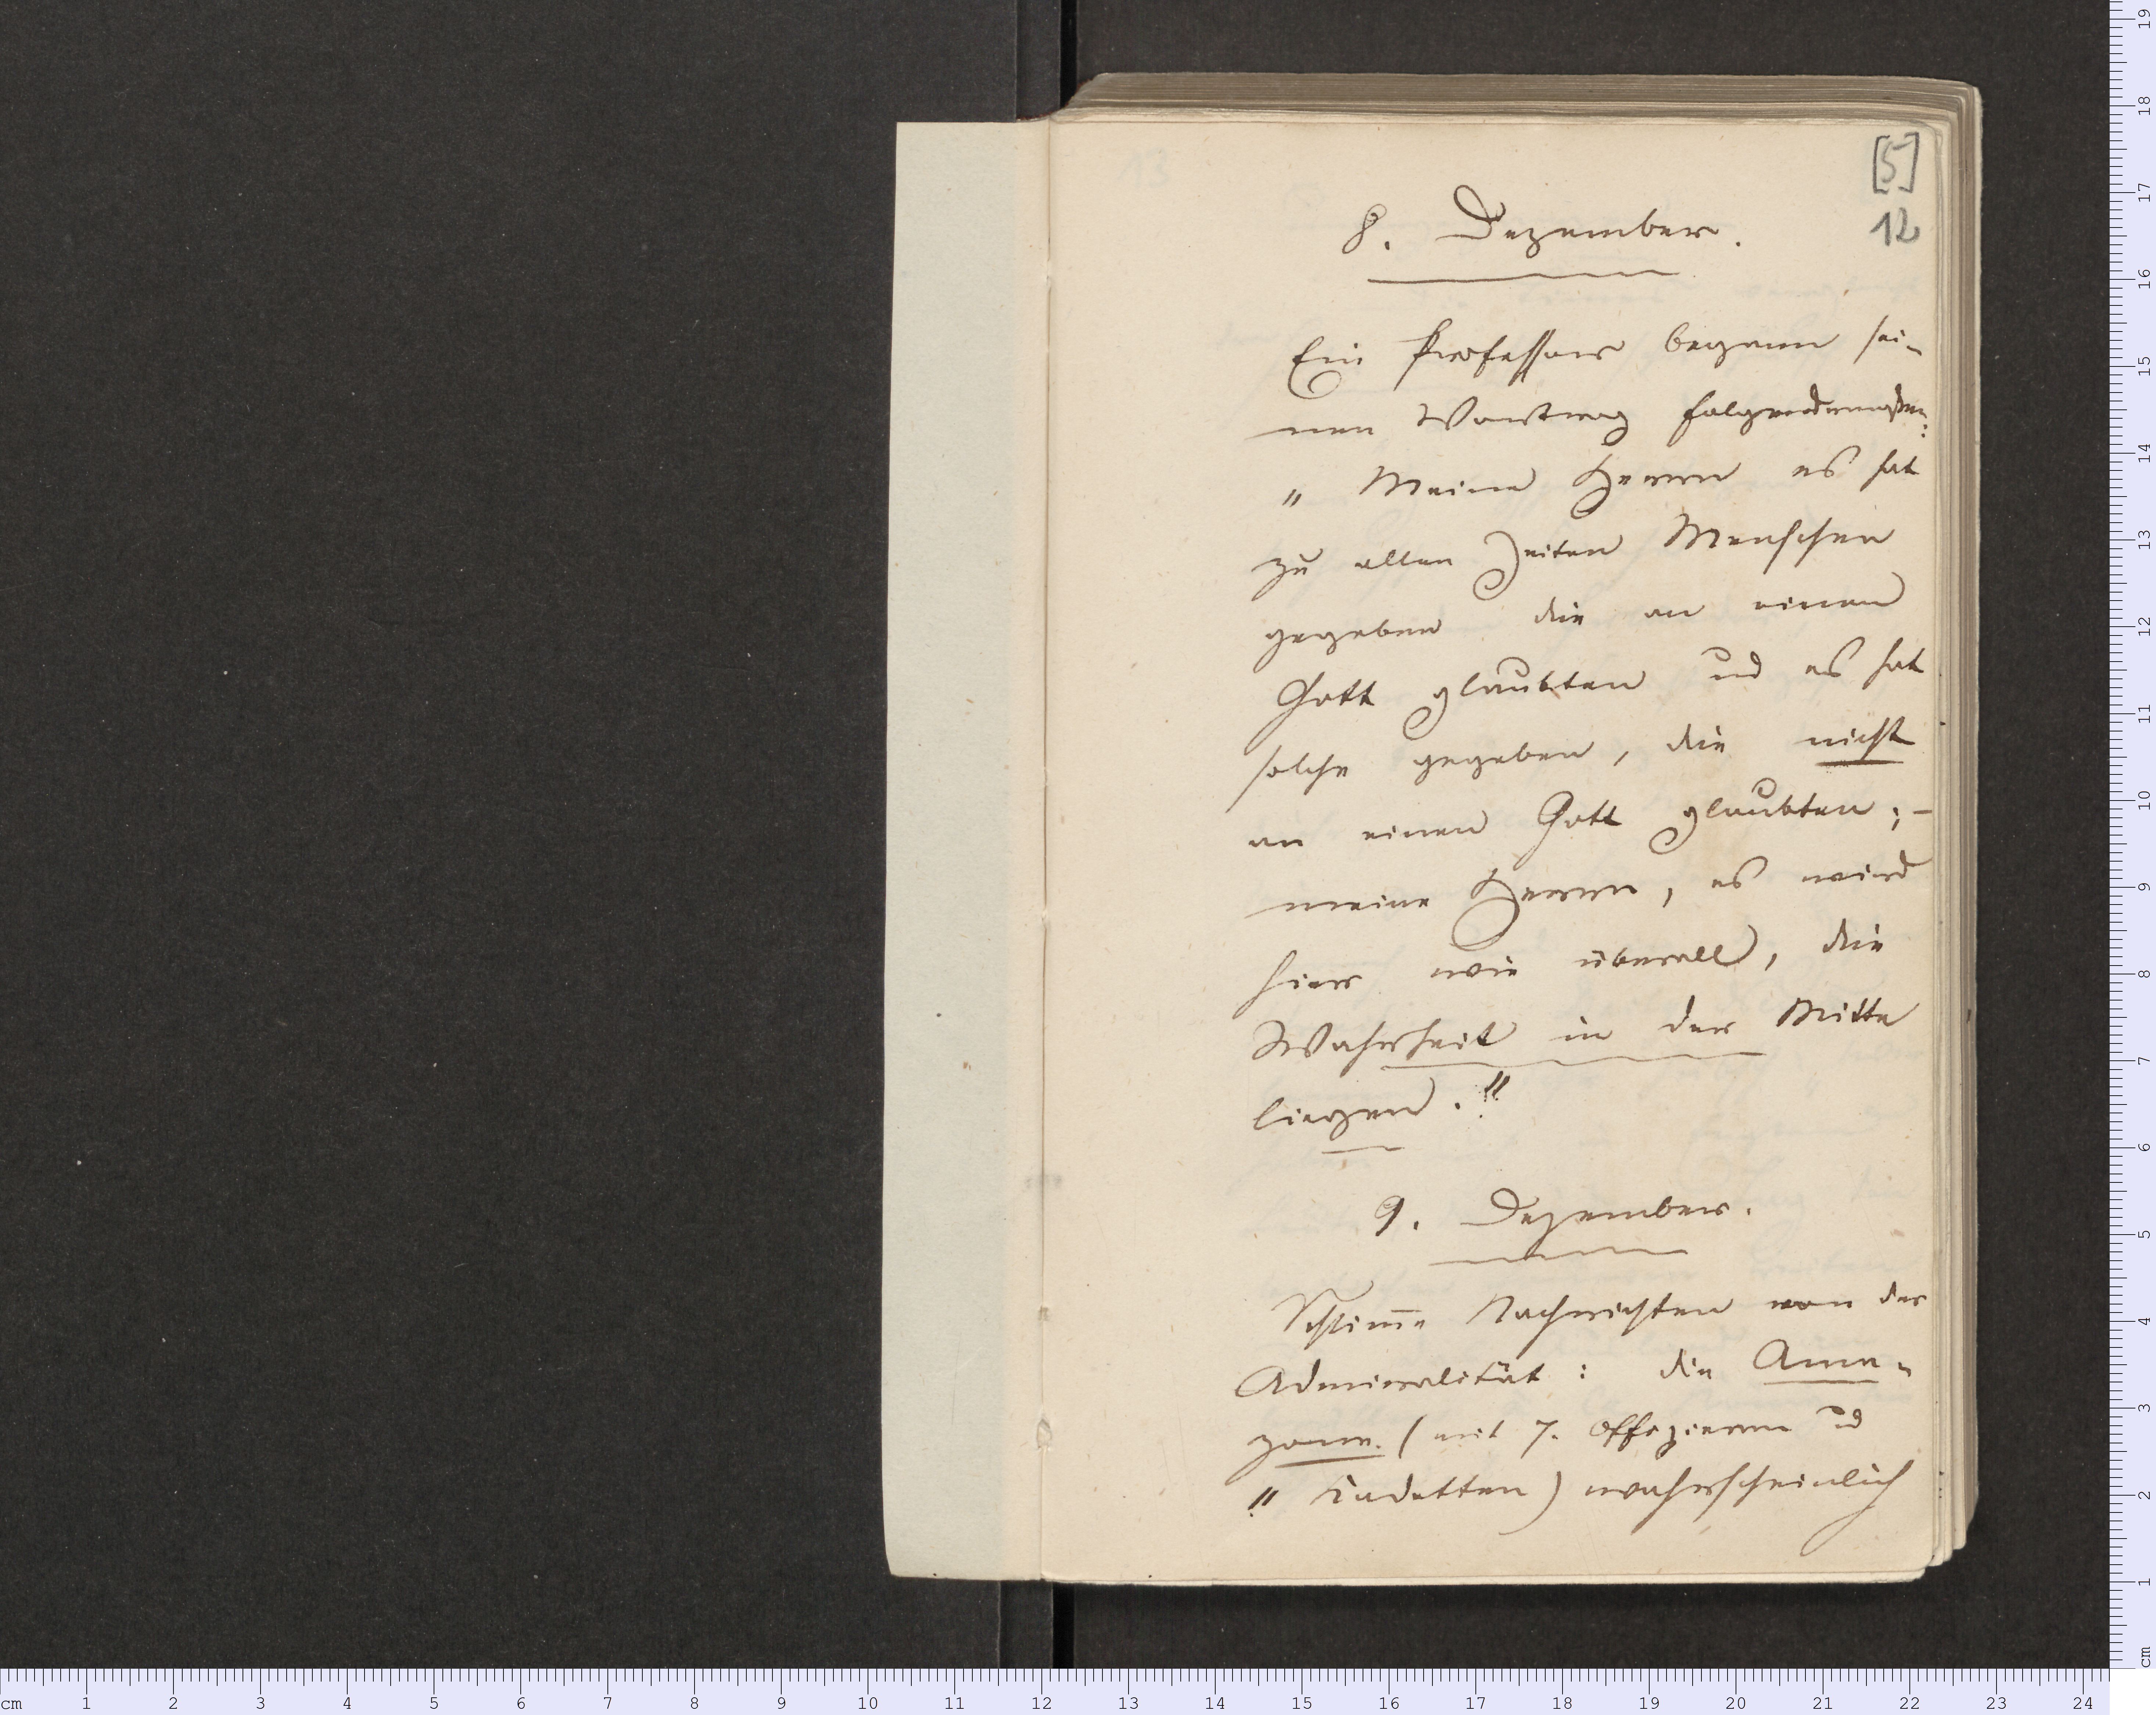 [5]
12
8. Dezember.
Ein Professor begann sei-
nen Vortrag folgendermaßen:
" Meine Herren es hat
zu allen Zeiten Menschen
gegeben die an einen
Gott glaubten und es hat
solche gegeben, die nicht
an einen Gott glaubten; –
meine Herren, es wird
hier wie überall, die
Wahrheit in der Mitte
liegen."
9. Dezember.
Schlim̅e Nachrichten von der
Admiralität: die Ama-
zone. (mit 7. Offizieren ud
" Kadetten) wahrscheinlich
cm 1 2 3 4 5 6 7 8 9 10 11 12 13 14 15 16 17 18 19 20 21 22 23 24
cm 1 2 3 4 5 6 7 8 9 10 11 12 13 14 15 16 17 18 19